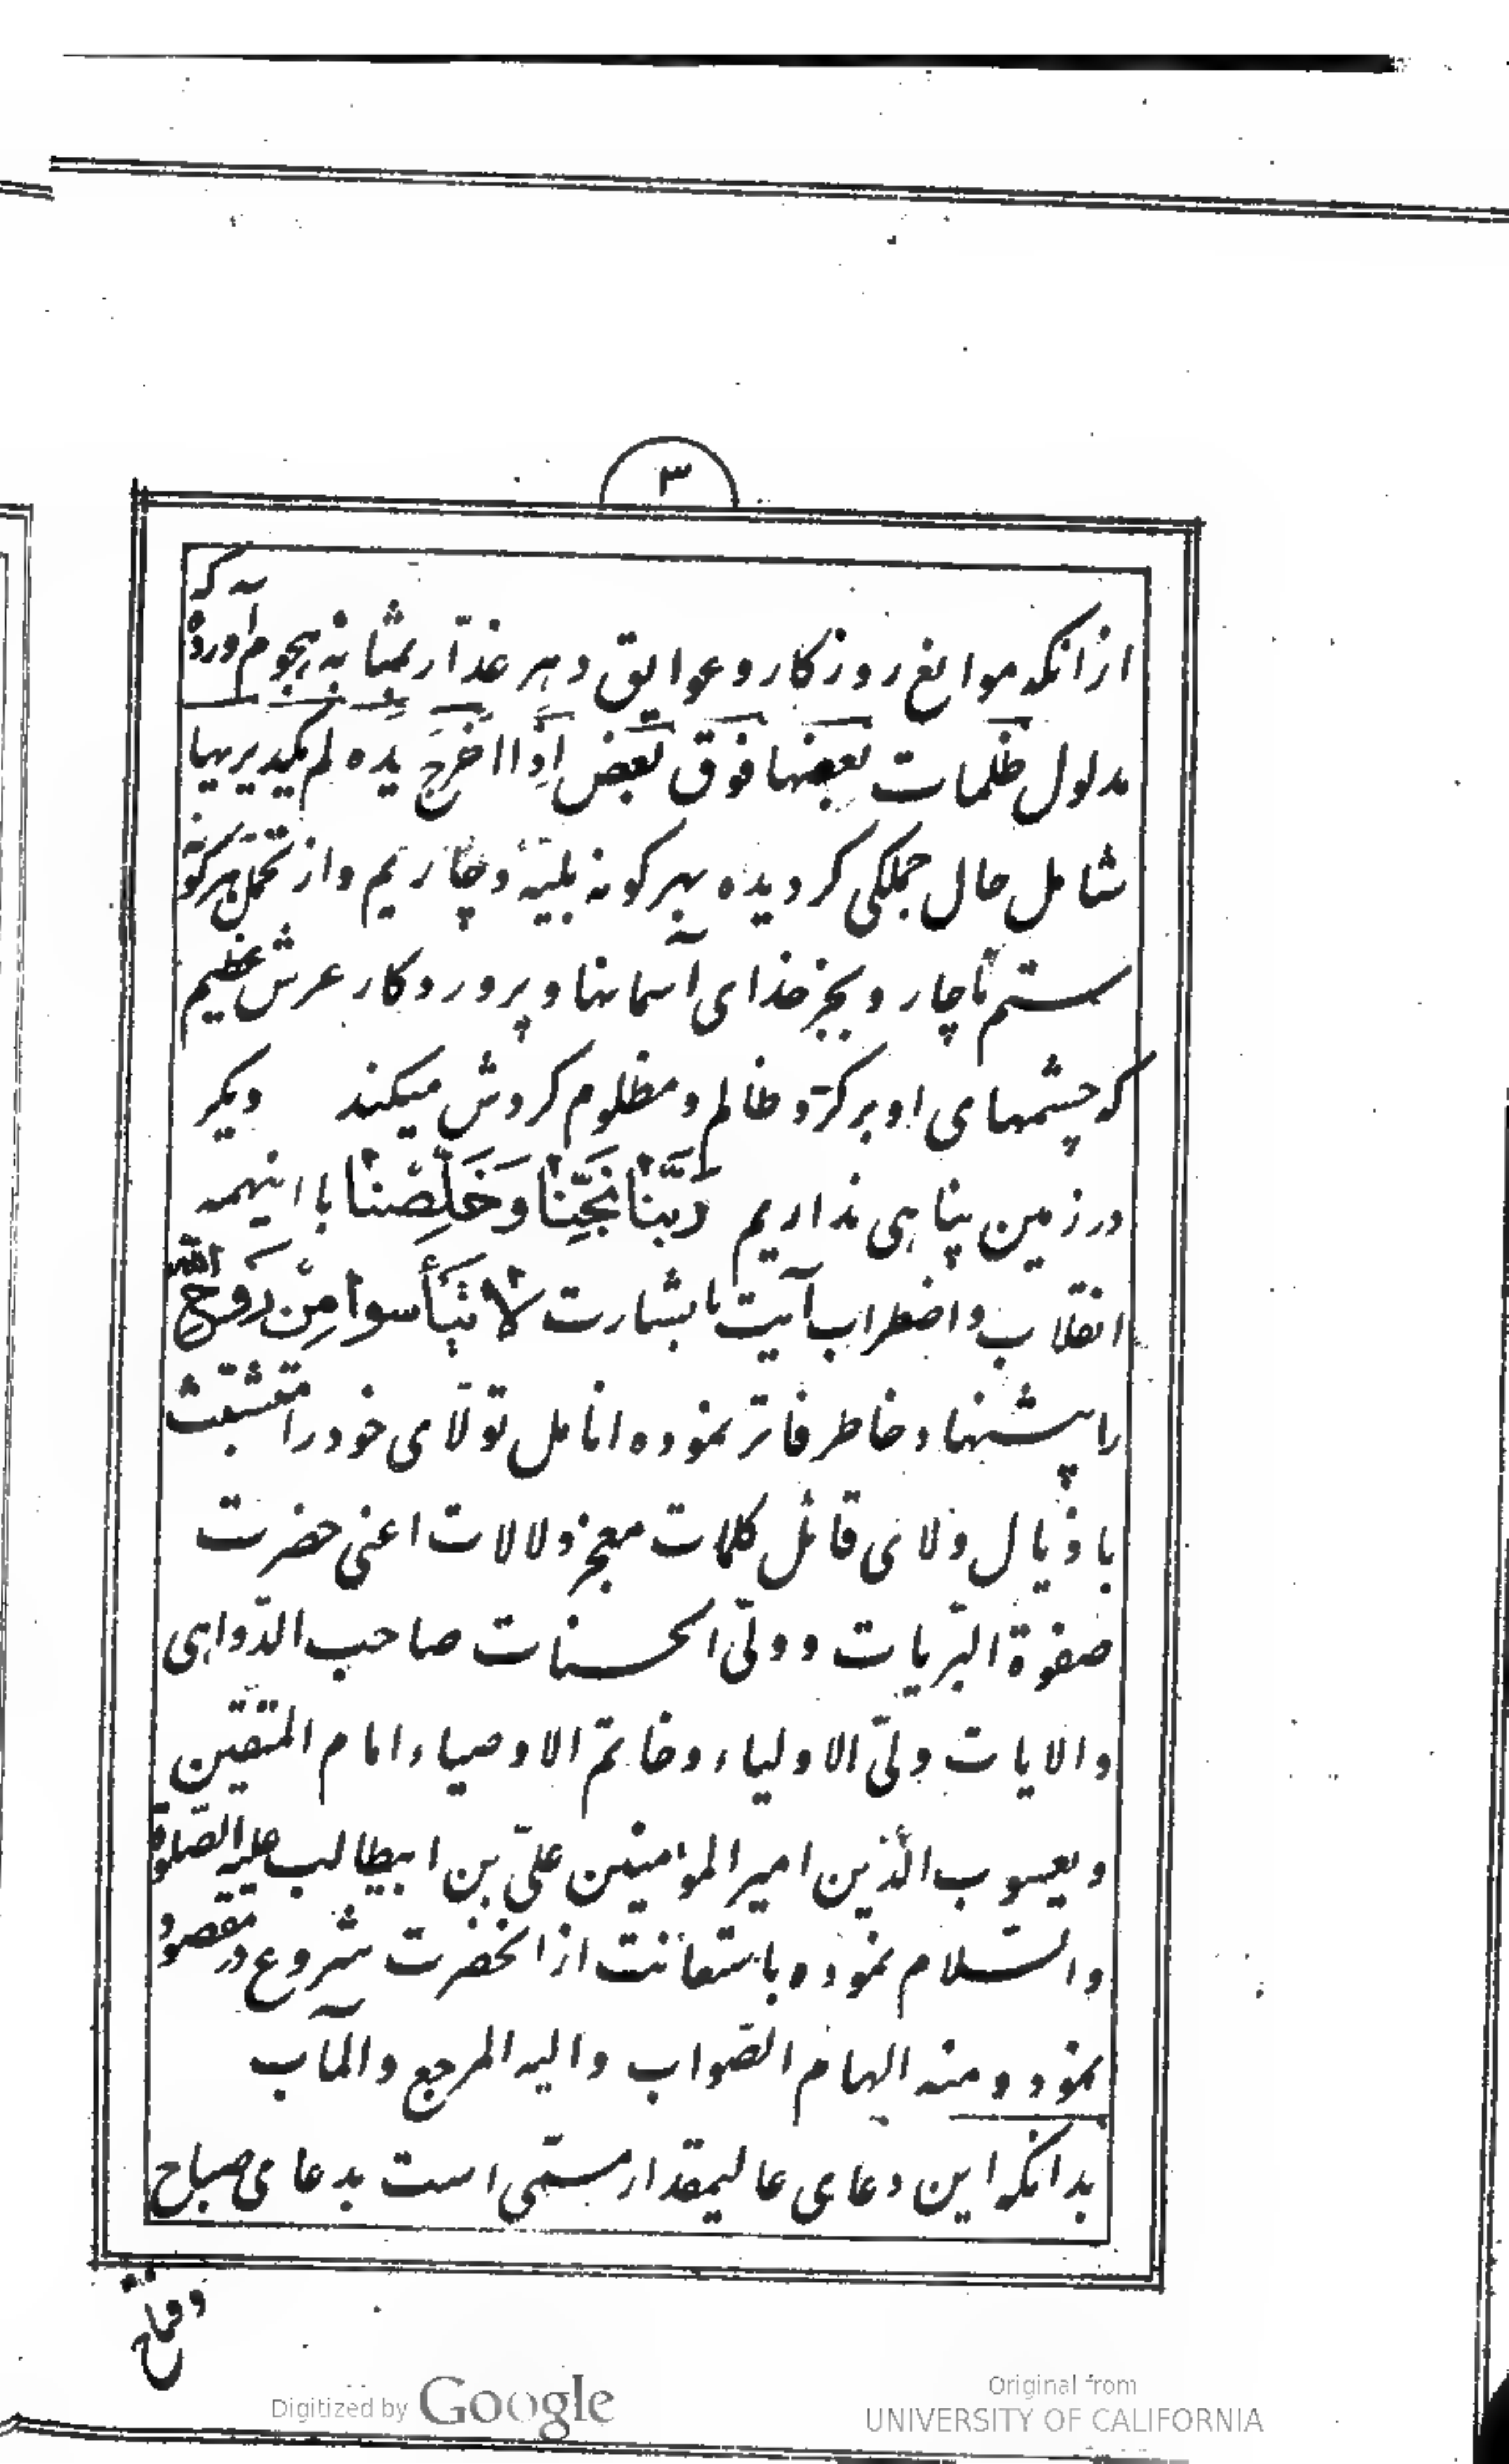 ۳
از انکه موانع روزکار و عوایق دهر غدّار بمثابه هجوم آورده که
مدلول ظلمات بعضها فوق بعض اذا اخرج یده لم یکد یریها
شامل حال جملکی کردیده بهر کونه بلیّه دچاریم و از تحمل هر کونه
ستم ناچار و بجز خدای آسمانها و پروردکار عرش عظیم
که چشمهای او بر کرد ظالم و مظلوم کردش میکند دیکر
در زمین پناهی نداریم رَبَّنا نَجِّنا وَخَلِّصْنا با اینهمه
انقلاب و اضطراب آیت با بشارت لا تَيْأسوا مِنْ رَوحِ الله
را پیشنهاد خاطر فاتر نموده انامل تولّای خود را متشبّث
باذیال ولای قائل کلمات معجز دلالات اعنی حضرت
صفوة البریّات و ولیّ الحسنات صاحب الدّواهی
والایات ولیّ الاولیاء و خاتم الاوصیاء امام المتّقین
و یعسوب الدّین امیر المؤمنین علیّ بن ابیطالب علیه الصّلوة
والسّلام نموده باستعانت از انحضرت شروع در مقصود
نمود و منه الهام الصّواب و الیه المرجع والمآب
بدانکه این دعای عالیمقدار مسمّی است بدعای صباح
Digitized by Google
Original from
UNIVERSITY OF CALIFORNIA